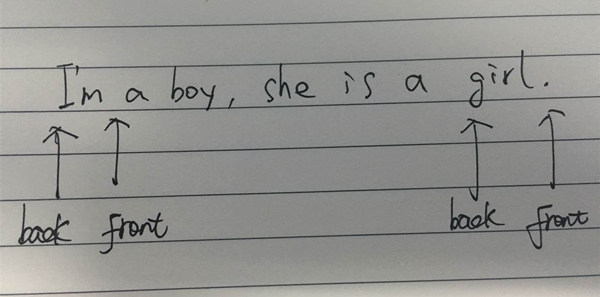 I'm a boy, she is a girl.
back front back front